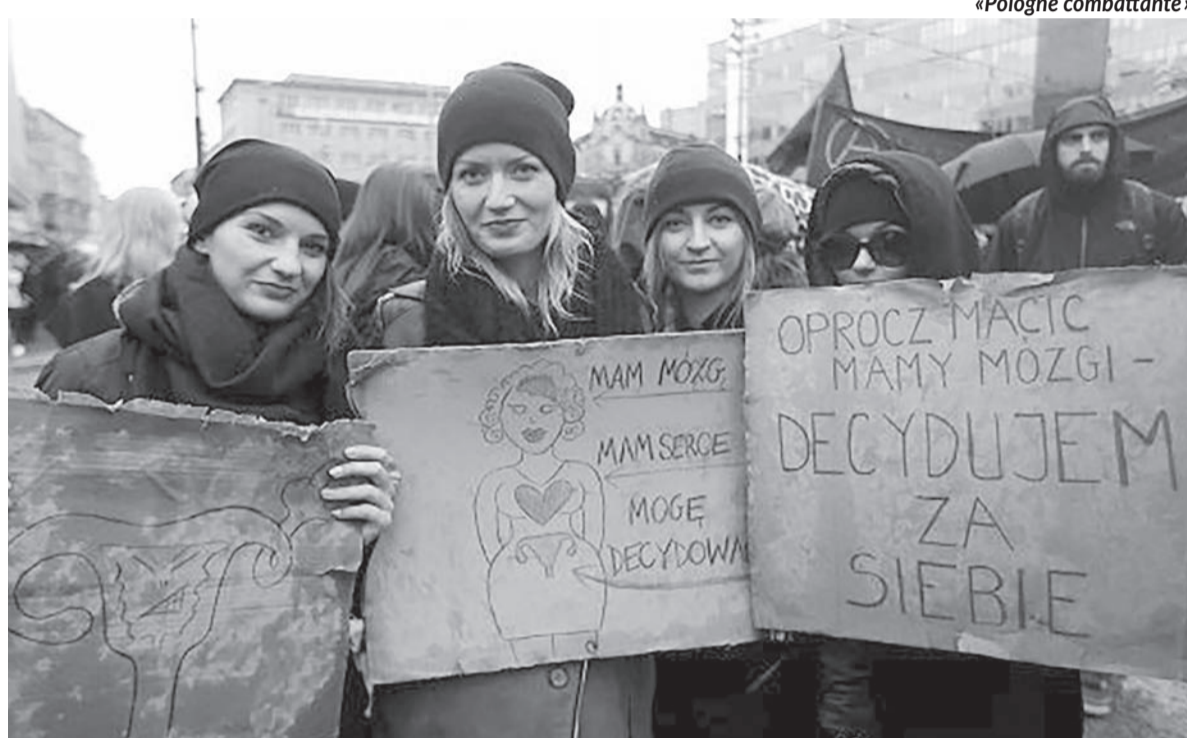 «Pologne combattante»
MAM MÓZG
MAM SERCE
MOGĘ
DECYDOWA
OPROCZ MACIC
MAMY MOZGI -
DECYDUJEM
ZA
SIEBIE